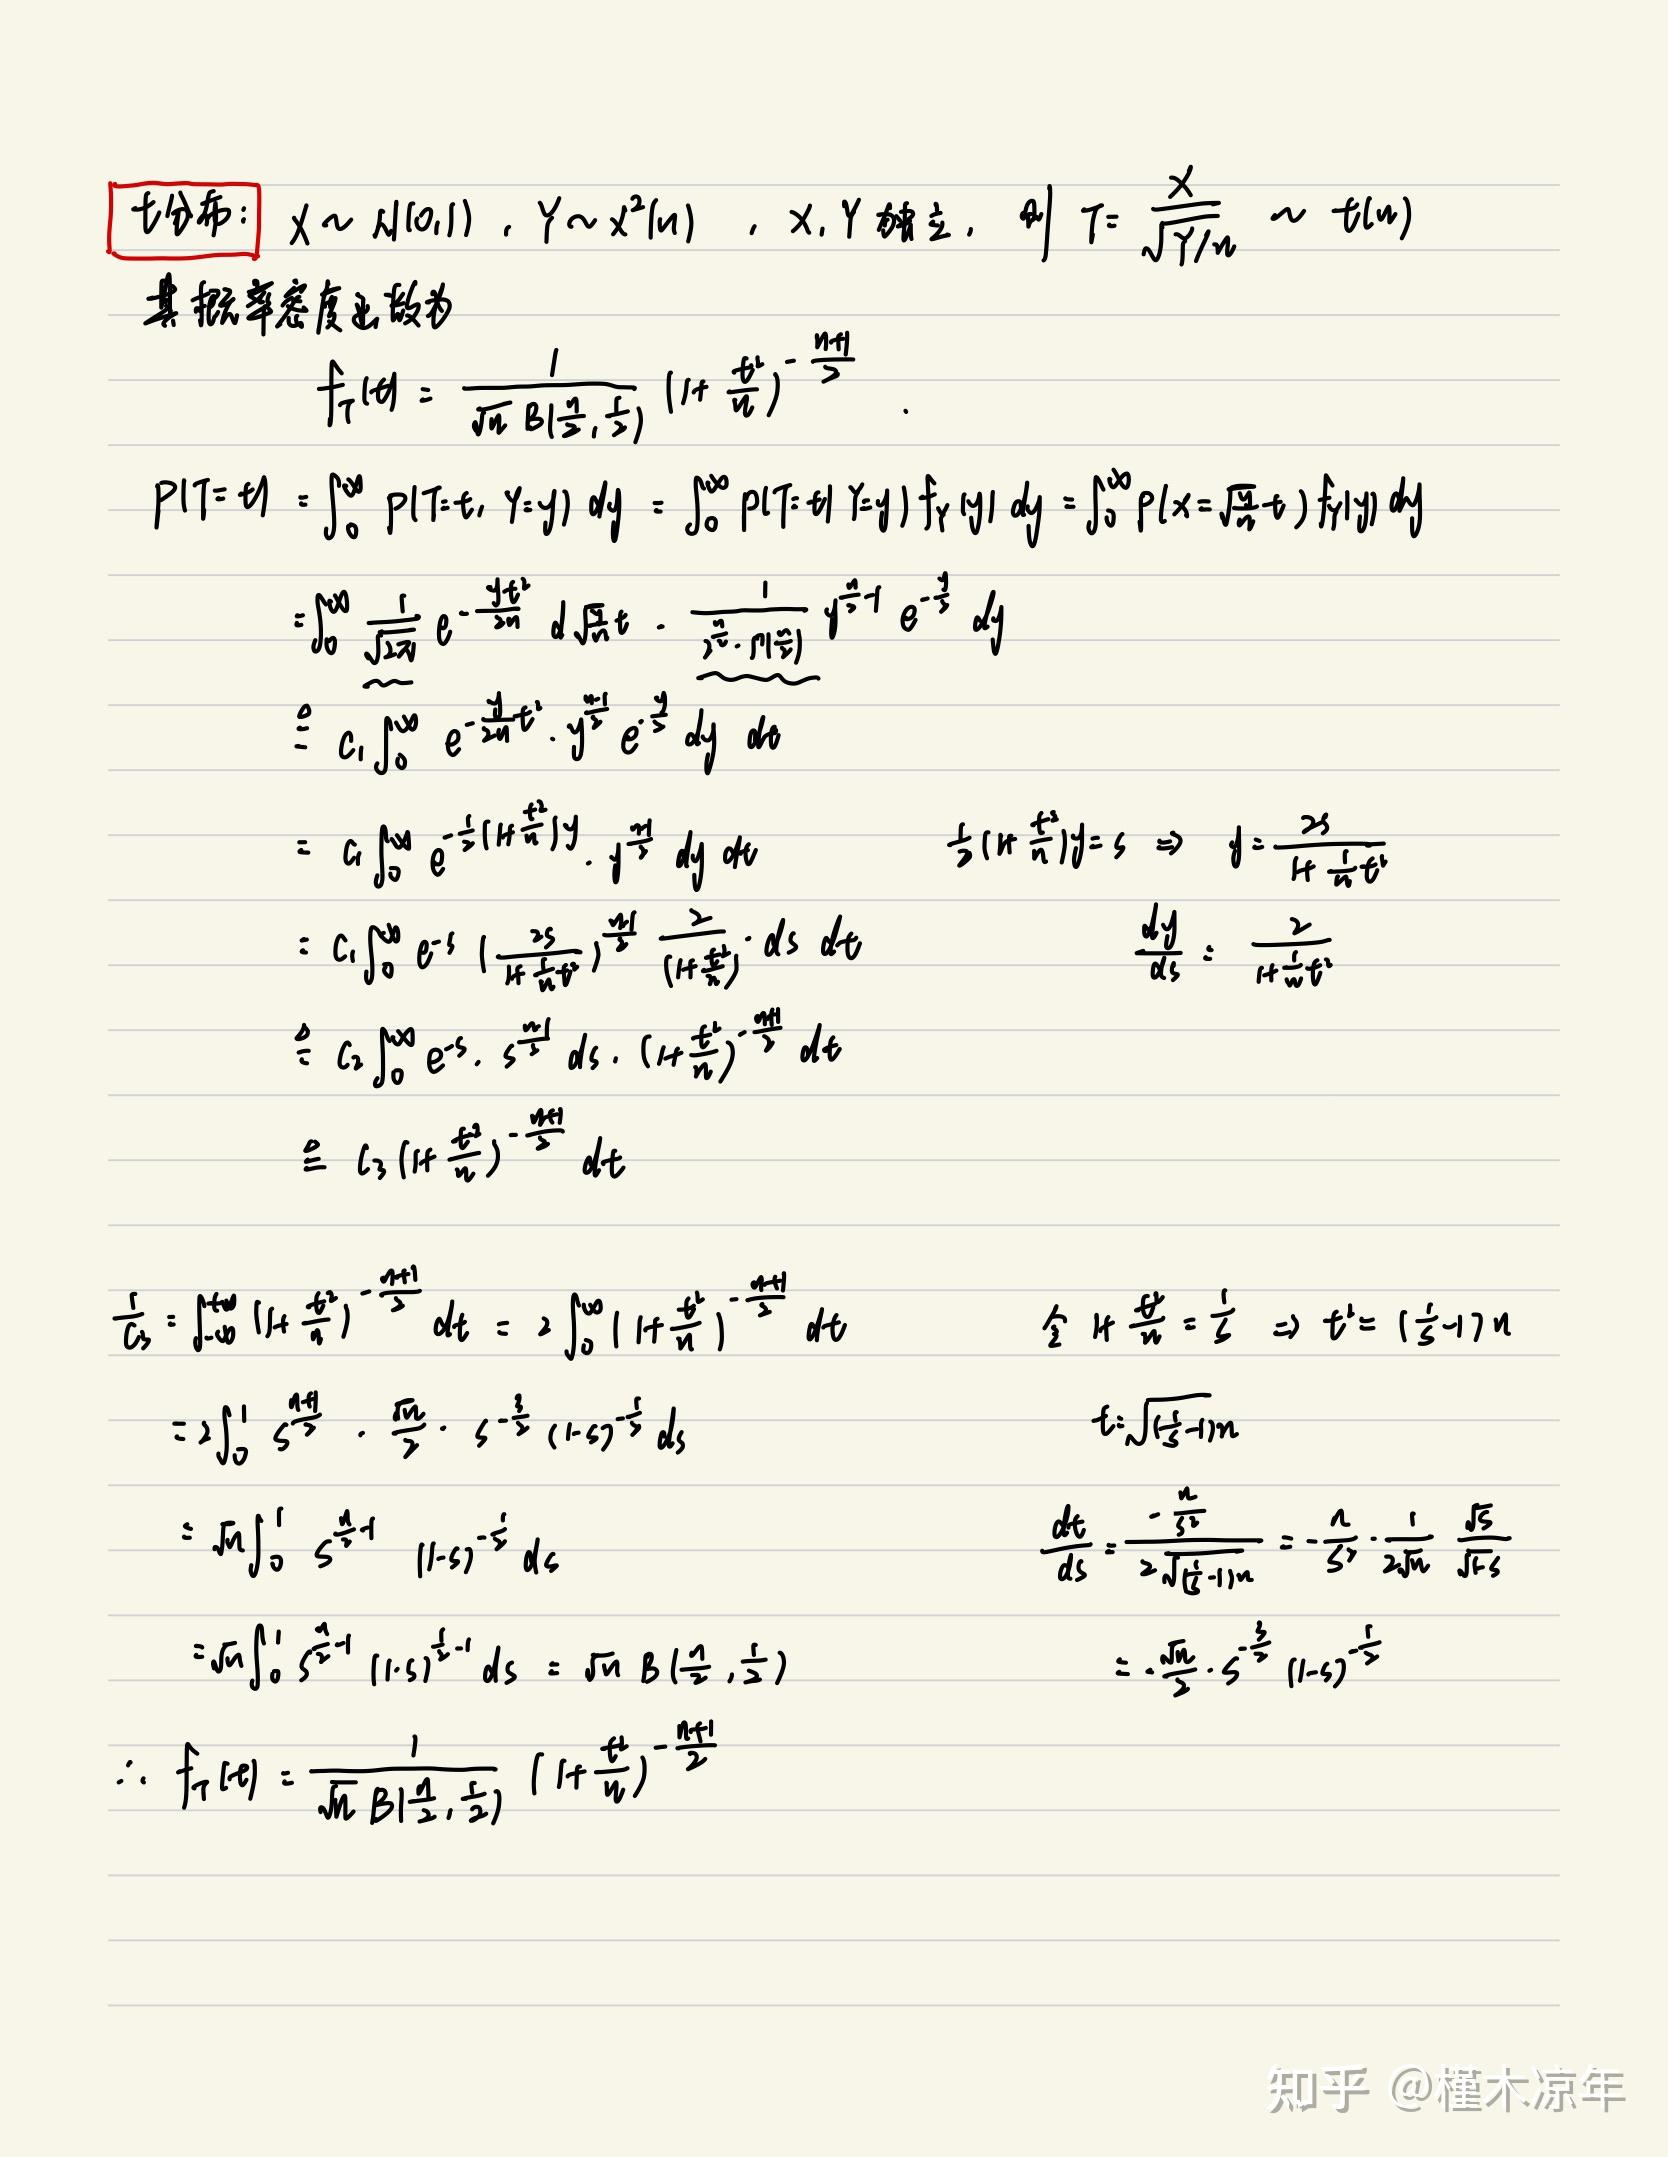 t分布: X ~ N(0,1) , Y ~ χ²(n) , X, Y 独立, 则 T = X / √(Y/n) ~ t(n)
其概率密度函数为
f_T(t) = 1 / (√n B(n/2, 1/2)) (1 + t²/n)^(-(n+1)/2) .
P(T=t) = ∫_0^∞ P(T=t, Y=y) dy = ∫_0^∞ P(T=t | Y=y) f_Y(y) dy = ∫_0^∞ P(X = √(y/n) t) f_Y(y) dy
= ∫_0^∞ 1/√(2π) e^(-yt²/(2n)) d√(y/n) t · 1/(2^(n/2) · Γ(n/2)) y^(n/2 - 1) e^(-y/2) dy
≜ C₁ ∫_0^∞ e^(-y/(2n) t²) · y^((n-1)/2) e^(-y/2) dy dt
= C₁ ∫_0^∞ e^(-1/2 (1 + t²/n) y) · y^((n-1)/2) dy dt 1/2 (1 + t²/n) y = s ⇒ y = 2s / (1 + 1/n t²)
= C₁ ∫_0^∞ e^(-s) (2s / (1 + 1/n t²))^((n-1)/2) 2/(1 + t²/n) · ds dt dy/ds = 2 / (1 + 1/n t²)
≜ C₂ ∫_0^∞ e^(-s) · s^((n-1)/2) ds · (1 + t²/n)^(-(n+1)/2) dt
≜ C₃ (1 + t²/n)^(-(n+1)/2) dt
1/C₃ = ∫_-∞^+∞ (1 + t²/n)^(-(n+1)/2) dt = 2 ∫_0^∞ (1 + t²/n)^(-(n+1)/2) dt 令 1 + t²/n = 1/s ⇒ t² = (1/s - 1) n
= 2 ∫_0^1 s^((n+1)/2) · √n/2 · s^(-3/2) (1-s)^(-1/2) ds t = √((1/s - 1) n)
= √n ∫_0^1 s^(n/2 - 1) (1-s)^(-1/2) ds dt/ds = (-n/s²) / (2√((1/s - 1) n)) = -n/s² · 1/(2√n) √s/√(1-s)
= √n ∫_0^1 s^(n/2 - 1) (1-s)^(1/2 - 1) ds = √n B(n/2, 1/2) = -√n/2 · s^(-3/2) (1-s)^(-1/2)
∴ f_T(t) = 1 / (√n B(n/2, 1/2)) (1 + t²/n)^(-(n+1)/2)
知乎 @槿木凉年